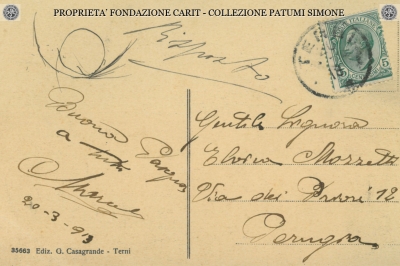 PROPRIETA' FONDAZIONE CARIT - COLLEZIONE PATUMI SIMONE
Risposto
POSTE ITALIANE
5 5
Buona Pasqua
a tutti
20-3-913
Gentile Signora
Elvira Mozzetti
Via dei Priori 12
Perugia
35663 Ediz. G. Casagrande - Terni